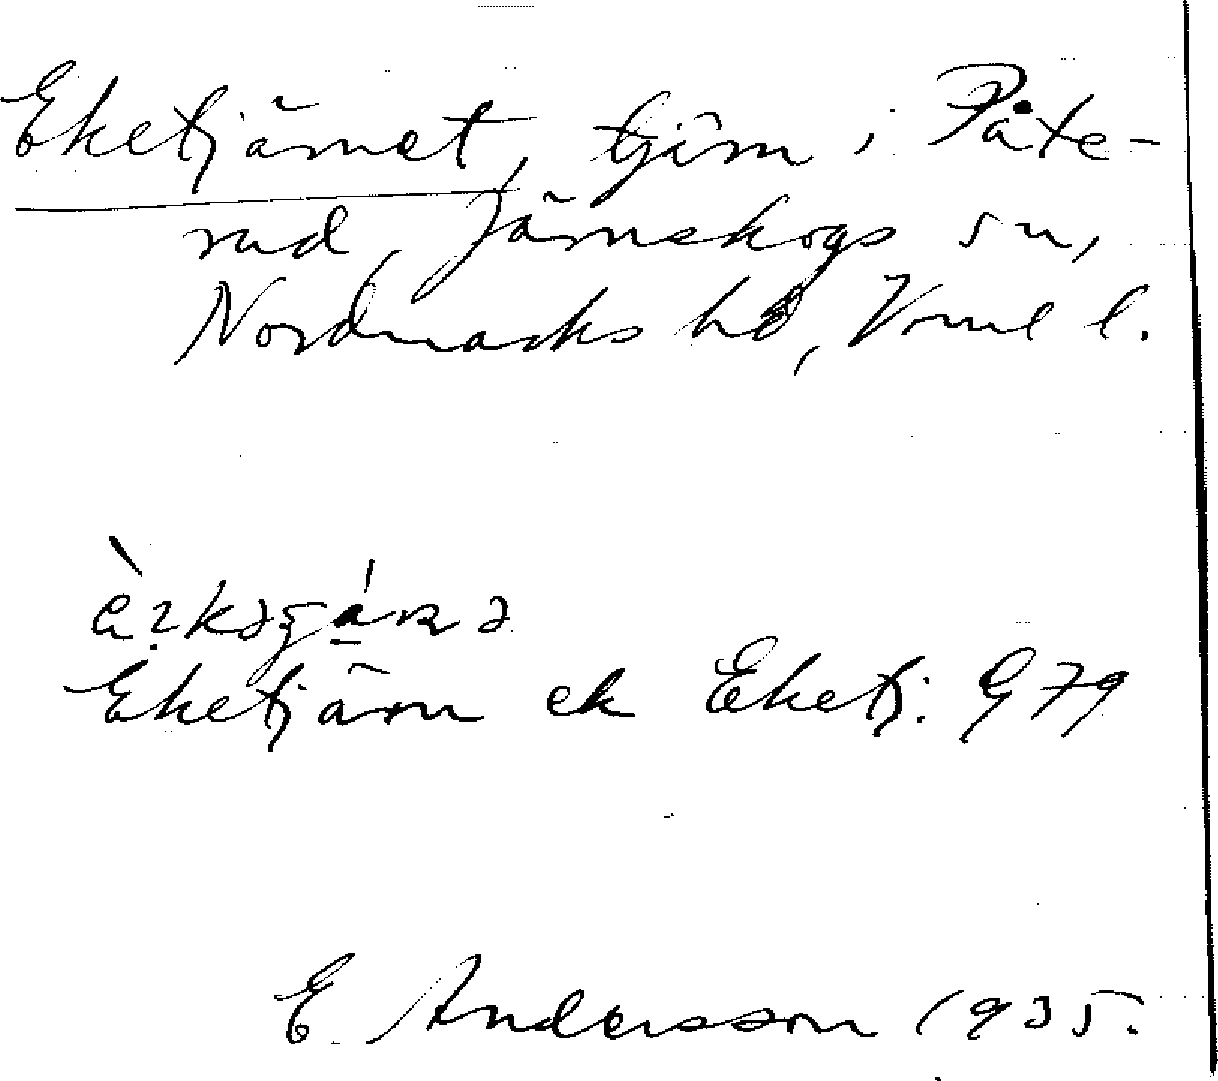 Eketjärnet, tjärn i Påte-
rud, Järnskogs sn,
Nordmarks hd, Vrml l.
Eketjärn ek Eketj: G 79
E. Andersson 1935.